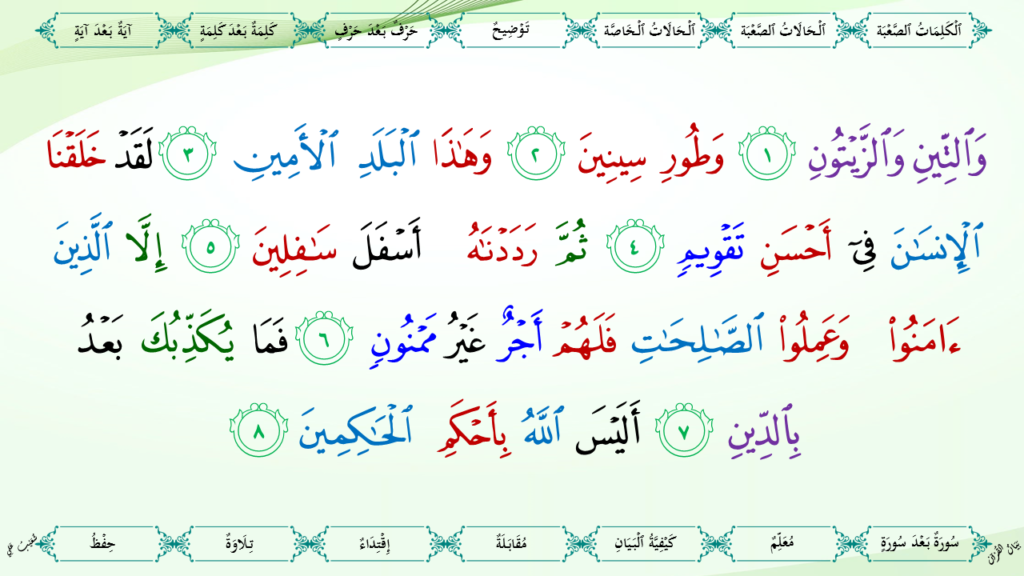 ٱلْكَلِمَاتُ ٱلصَّعْبَة ٱلْحَالَاتُ ٱلصَّعْبَة ٱلْحَالَاتُ ٱلْخَاصَّة تَوْضِيحٌ حَرْفٌ بَعْدَ حَرْفٍ كَلِمَةٌ بَعْدَ كَلِمَةٍ آيَةٌ بَعْدَ آيَةٍ
وَٱلتِّينِ وَٱلزَّيْتُونِ ١ وَطُورِ سِينِينَ ٢ وَهَٰذَا ٱلْبَلَدِ ٱلْأَمِينِ ٣ لَقَدْ خَلَقْنَا
ٱلْإِنسَٰنَ فِىٓ أَحْسَنِ تَقْوِيمٍ ٤ ثُمَّ رَدَدْنَٰهُ أَسْفَلَ سَٰفِلِينَ ٥ إِلَّا ٱلَّذِينَ
ءَامَنُوا۟ وَعَمِلُوا۟ ٱلصَّٰلِحَٰتِ فَلَهُمْ أَجْرٌ غَيْرُ مَمْنُونٍ ٦ فَمَا يُكَذِّبُكَ بَعْدُ
بِٱلدِّينِ ٧ أَلَيْسَ ٱللَّهُ بِأَحْكَمِ ٱلْحَٰكِمِينَ ٨
سُورَةٌ بَعْدَ سُورَةٍ مُعَلِّمٌ كَيْفِيَّةُ ٱلْبَيَانِ مُقَابَلَةٌ إِقْتِدَاءٌ تِلَاوَةٌ حِفْظُ
بَيَانُ القُرْآنِ